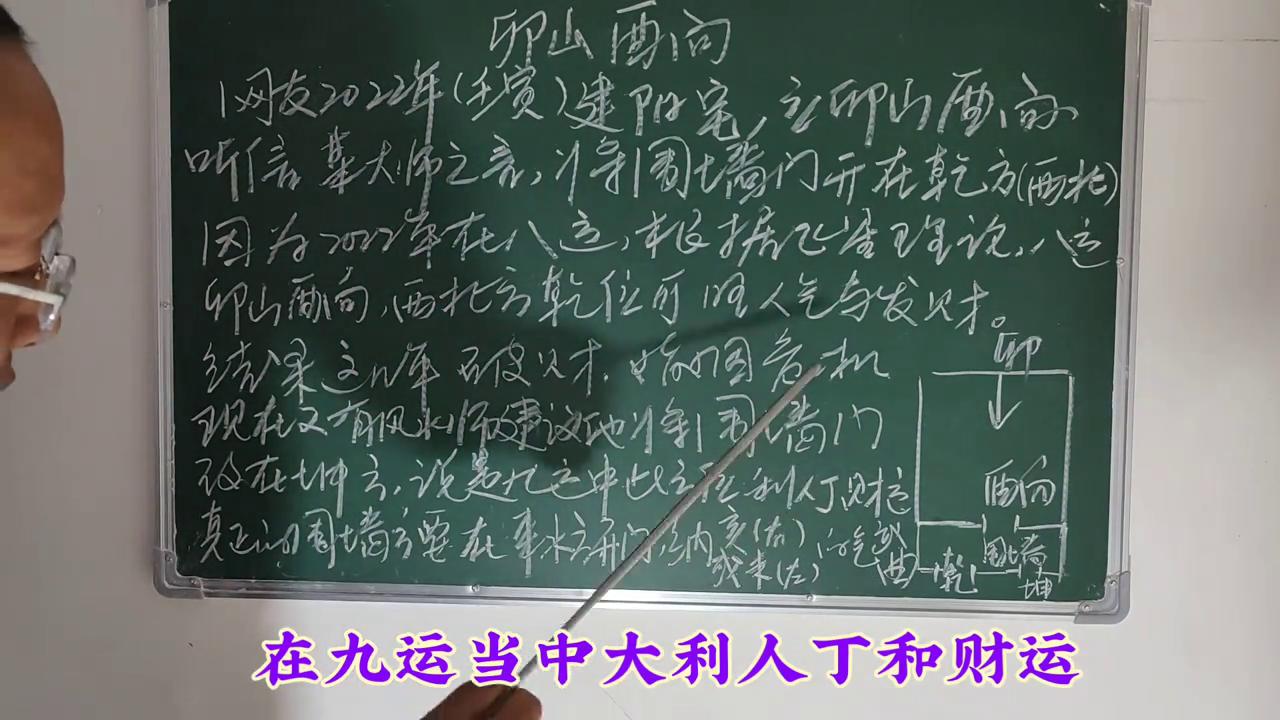 卯山酉向
1网友2022年(壬寅)建阳宅,立卯山酉向
听信某大师之言,将围墙门开在乾方(西北)
因为2022年在八运,根据飞星理论,八运
卯山酉向,西北方乾位可旺人气与发财。
结果这几年破财,婚姻危机
现在又有风水师建议他将围墙门
改在坤方,说是九运中此方位利人丁财运
真正的围墙方要在来水方开门,纳亥(右)
或未(左)
的气武曲
卯
酉向
围墙
乾
坤
在九运当中大利人丁和财运